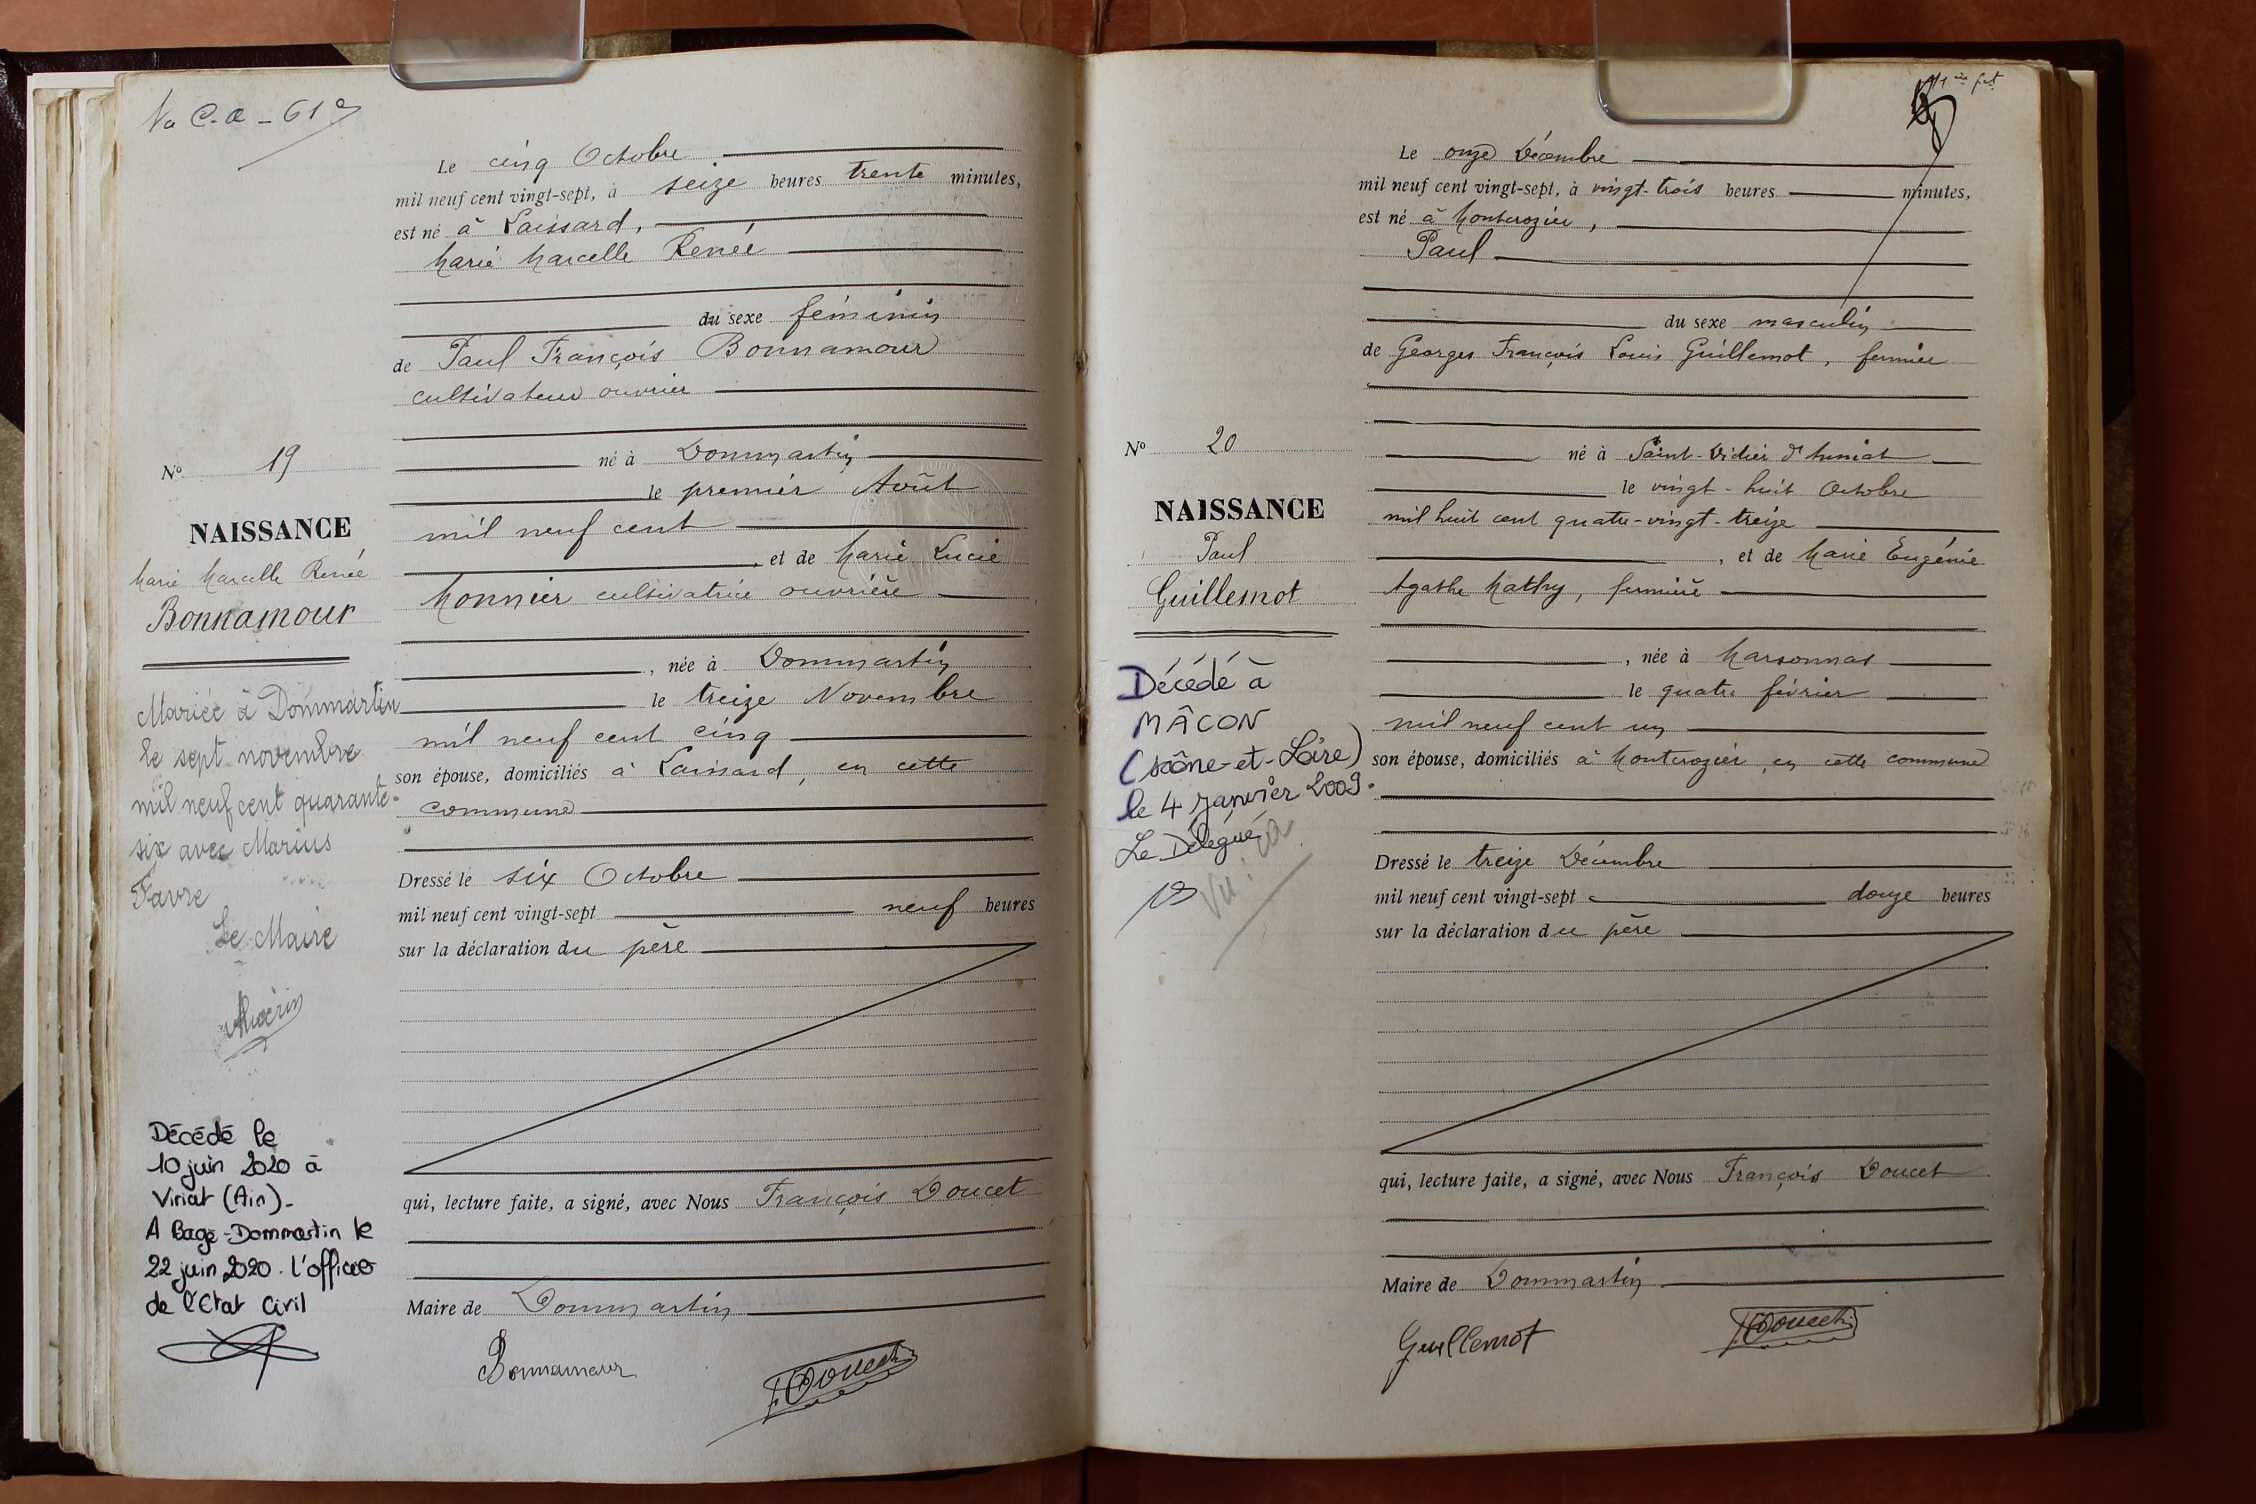 Vu C.a - 61
Le cinq Octobre
mil neuf cent vingt-sept, à seize heures trente minutes,
est né à Laissard,
Marie Marcelle Renée
du sexe féminin
de Paul François Bonnamour
cultivateur ouvrier
né à Dommartin
le premier Août
mil neuf cent
, et de Marie Lucie
Monnier cultivatrice ouvrière
, née à Dommartin
le treize Novembre
mil neuf cent cinq
son épouse, domiciliés à Laissard, en cette
commune
Dressé le six Octobre
mil neuf cent vingt-sept neuf heures
sur la déclaration du père
qui, lecture faite, a signé, avec Nous François Doucet
Maire de Dommartin
Bonnamour
F Doucet
N° 19
NAISSANCE
Marie Marcelle Renée
Bonnamour
Mariée à Dommartin
le sept novembre
mil neuf cent quarante-
six avec Marius
Favre
Le Maire
Décédé le
10 juin 2020 à
Viriat (Ain)_
A Bagé-Dommartin le
22 juin 2020. L'officier
de l'Etat Civil
Le onze Décembre
mil neuf cent vingt-sept, à vingt-trois heures minutes,
est né à Montcrozier,
Paul
du sexe masculin
de Georges François Louis Guillemot, fermier
né à Saint-Didier d'Aussiat
le vingt-huit Octobre
mil huit cent quatre-vingt-treize
, et de Marie Eugénie
Agathe Mathy, fermière
, née à Marsonnas
le quatre février
mil neuf cent un
son épouse, domiciliés à Montcrozier, en cette commune
Dressé le treize Décembre
mil neuf cent vingt-sept douze heures
sur la déclaration du père
qui, lecture faite, a signé, avec Nous François Doucet
Maire de Dommartin
Guillemot
F Doucet
N° 20
NAISSANCE
Paul
Guillemot
Décédé à
MÂCON
(Saône-et-Loire)
le 4 Janvier 2009.
Le Délégué,
Vu